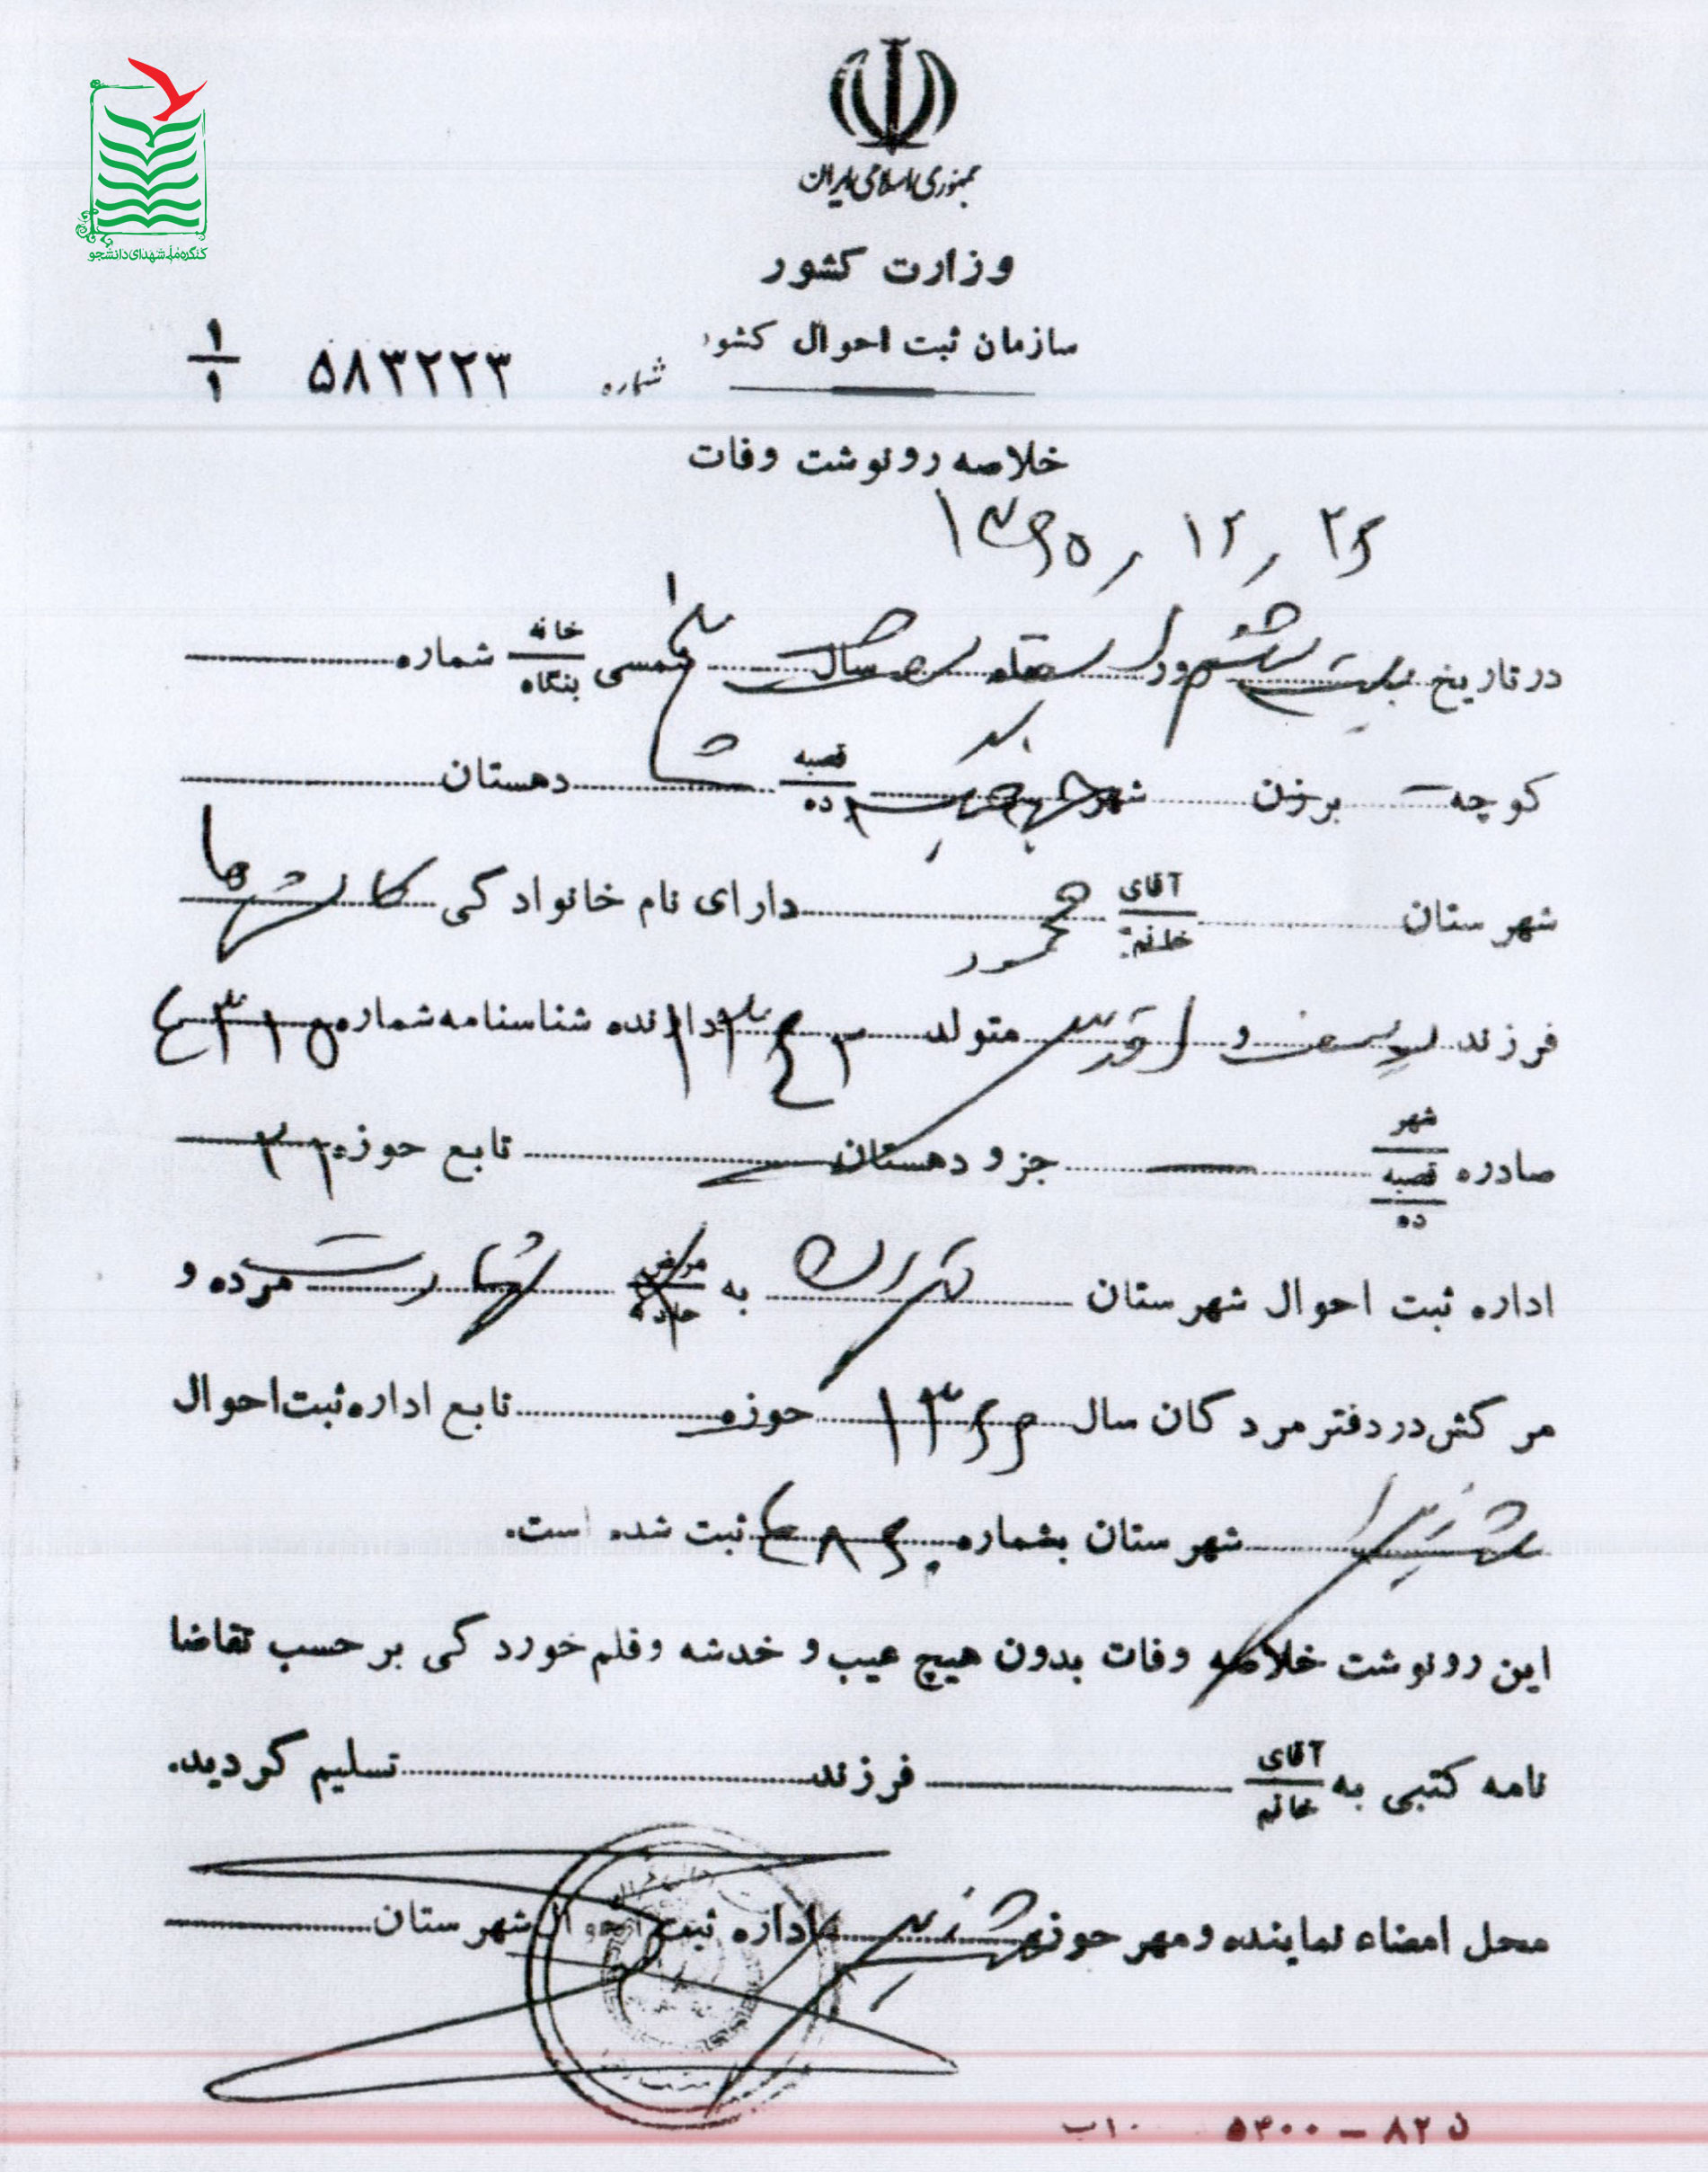 جمهوری اسلامی ایران
کنگره ملی شهدای دانشجو
وزارت کشور
سازمان ثبت احوال کشور
شماره ۵۸۳۲۲۳ ۱/۱
خلاصه رونوشت وفات
۱۳۶۵/۱۲/۲۶
در تاریخ بیست و ششم اسفند سال شصت و پنج شمسی خانه/بنگاه شماره
کوچه برزن شهر قصبه/ده دهستان
شهرستان آقای/خانم محمود دارای نام خانوادگی
فرزند یوسف و اقدس متولد ۱۳۴۲ دارنده شناسنامه شماره ۴۳۱۵
صادره شهر/قصبه/ده جزو دهستان تابع حوزه ۲۱
اداره ثبت احوال شهرستان تهران به مرض/حادثه شهادت مرده و
مرگش در دفتر مردگان سال ۱۳۶۶ حوزه تابع اداره ثبت احوال
شهرستان بشماره ۴۸۶۰ ثبت شده است.
این رونوشت خلاصه وفات بدون هیچ عیب و خدشه و قلم خوردگی بر حسب تقاضا
نامه کتبی به آقای/خانم فرزند تسلیم گردید.
محل امضاء نماینده و مهر حوزه اداره ثبت احوال شهرستان
ن ۸۲ – ۵۴۰۰ ۱۰ب